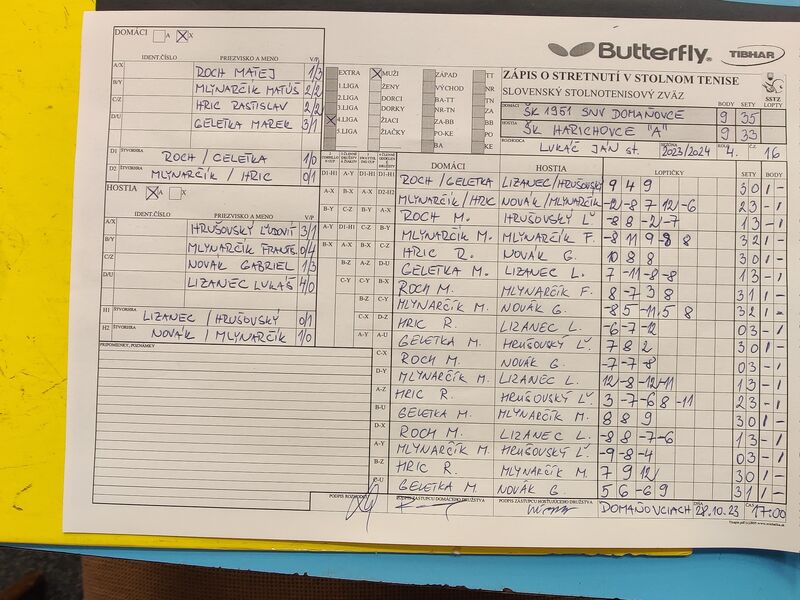 DOMÁCI A X
Butterfly TIBHAR
IDENT.ČÍSLO PRIEZVISKO A MENO V/P
ZÁPIS O STRETNUTÍ V STOLNOM TENISE
SLOVENSKÝ STOLNOTENISOVÝ ZVÄZ
SSTZ
A/X ROCH MATEJ 1/3
B/Y MLYNARČÍK MATÚŠ 2/2
C/Z HRIC RASTISLAV 2/2
D/U GELETKA MAREK 3/1
EXTRA MUŽI ZÁPAD TT
1.LIGA ŽENY VÝCHOD NR
2.LIGA DORCI BA-TT TN
3.LIGA DORKY NR-TN ZA
4.LIGA ŽIACI ZA-BB BB
5.LIGA ŽIAČKY PO-KE PO
BA KE
DOMÁCI ŠK 1951 SNV DOMAŇOVCE BODY 9 SETY 35 LOPTY
HOSTIA ŠK HARICHOVCE "A" 9 33
ROZHODCA LUKÁČ JÁN st. SEZÓNA 2023/2024 4. 16
D1 ŠTVORHRA ROCH / GELETKA 1/0
D2 ŠTVORHRA MLYNARČÍK / HRIC 0/1
HOSTIA A X
IDENT.ČÍSLO PRIEZVISKO A MENO V/P
A/X HRUŠOVSKÝ ĽUDOVÍT 3/1
B/Y MLYNARČÍK FRANT. 0/4
C/Z NOVÁK GABRIEL 1/3
D/U LIZANEC LUKÁŠ 4/0
H1 ŠTVORHRA LIZANEC / HRUŠOVSKÝ 0/1
H2 ŠTVORHRA NOVÁK / MLYNARČÍK 1/0
PRIPOMIENKY, POZNÁMKY
DOMÁCI HOSTIA LOPTIČKY SETY BODY
ROCH / GELETKA LIZANEC / HRUŠOVSKÝ 9 4 9 3 0 1 -
MLYNARČÍK / HRIC NOVÁK / MLYNARČÍK -12 -8 7 12 -6 2 3 - 1
ROCH M. HRUŠOVSKÝ Ľ. -8 8 -2 -7 1 3 - 1
MLYNARČÍK M. MLYNARČÍK F. -8 11 9 -8 8 3 2 1 -
HRIC R. NOVÁK G. 10 8 8 3 0 1 -
GELETKA M. LIZANEC L. 7 -11 -8 -8 1 3 - 1
ROCH M. MLYNARČÍK F. 8 -7 3 8 3 1 1 -
MLYNARČÍK M. NOVÁK G. -8 5 -11 5 8 3 2 1 -
HRIC R. LIZANEC L. -6 -7 -12 0 3 - 1
GELETKA M. HRUŠOVSKÝ Ľ. 7 8 2 3 0 1 -
ROCH M. NOVÁK G. -7 -7 -8 0 3 - 1
MLYNARČÍK M. LIZANEC L. 12 -8 -12 -11 1 3 - 1
HRIC R. HRUŠOVSKÝ Ľ. 3 -7 -6 8 -11 2 3 - 1
GELETKA M. MLYNARČÍK M. 8 8 9 3 0 1 -
ROCH M. LIZANEC L. -8 8 -7 -6 1 3 - 1
MLYNARČÍK M. HRUŠOVSKÝ Ľ. -9 -8 -4 0 3 - 1
HRIC R. MLYNARČÍK M. 7 9 12 3 0 1 -
GELETKA M. NOVÁK G. 5 6 -6 9 3 1 1 -
PODPIS ROZHODCU PODPIS ZÁSTUPCU DOMÁCEHO DRUŽSTVA PODPIS ZÁSTUPCU HOSŤUJÚCEHO DRUŽSTVA DOMAŇOVCIACH DŇA 28.10.23 ČAS 17:00